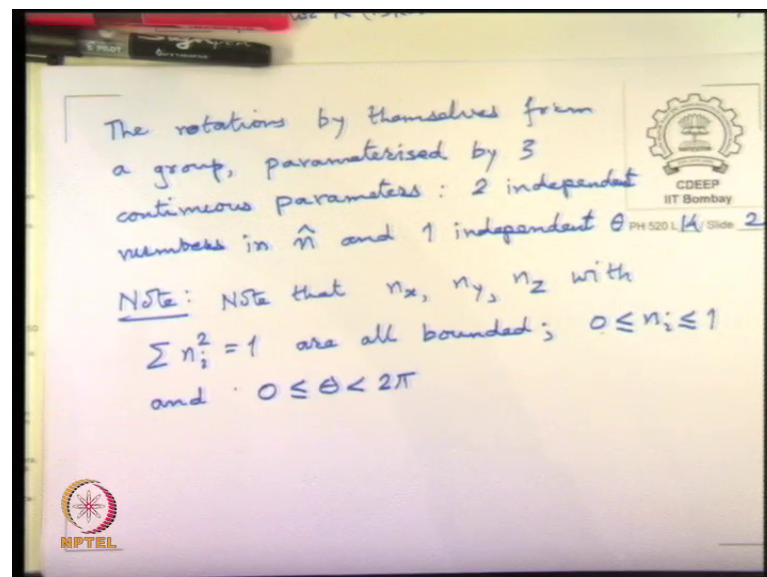 S PILOT
The rotations by themselves form
a group, parameterised by 3
continuous parameters : 2 independent
numbers in n̂ and 1 independent θ
CDEEP
IIT Bombay
PH 520 L 14 / Slide 2
Note : Note that nx, ny, nz with
Σ ni² = 1 are all bounded; 0 ≤ ni ≤ 1
and 0 ≤ θ < 2π
NPTEL